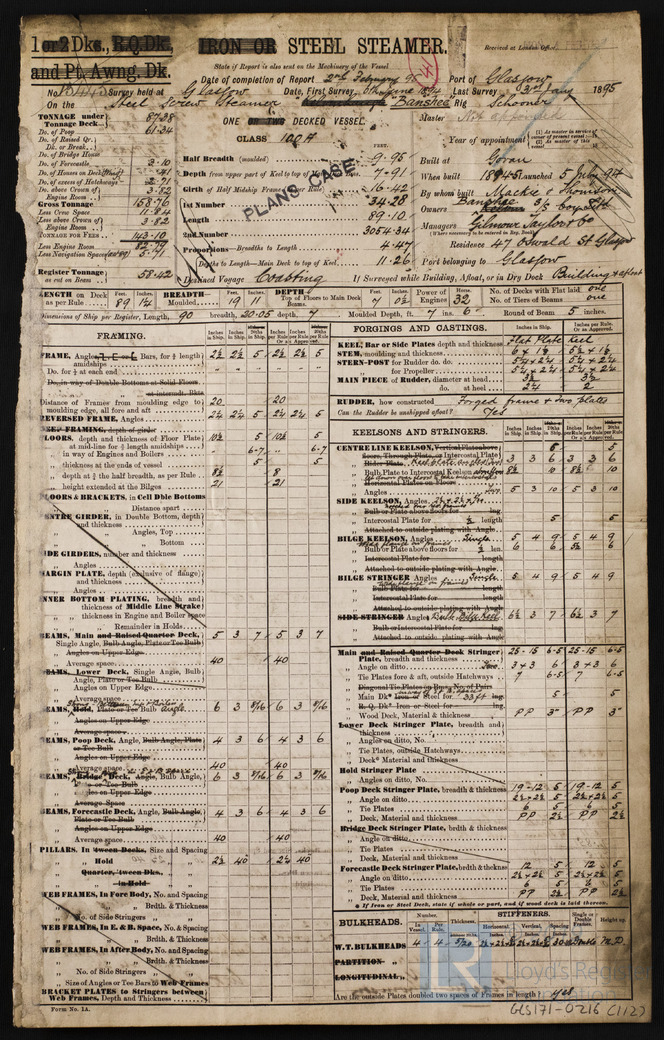 1 or 2 Dks., R.Q.Dk., IRON OR STEEL STEAMER.
and Pt. Awng. Dk.
State if Report is also sent on the Machinery of the Vessel
Date of completion of Report 2nd February 95 Port of Glasgow
No. Survey held at Glasgow Date, First Survey 6th June 1894 Last Survey 1895
On the Steel Screw Steamer "Banshee" Rig Schooner
TONNAGE under Tonnage Deck 87.28
Do. of Poop 61.34
Do. of Raised Qr. Dk. or Break
Do. of Bridge House
Do. of Forecastle 3.10
Do. of Houses on Deck .41
Do. of excess of Hatchways 2.71
Do. above Crown of Engine Room 3.82
Gross Tonnage 158.76
Less Crew Space 11.84
Less above Crown of Engine Room 3.82
TONNAGE FOR FEES 143.10
Less Engine Room 82.79
Less Navigation Spaces 5.71
Register Tonnage as cut on Beam 58.42
ONE OR TWO DECKED VESSEL.
CLASS 100A
PLANS CASE
Half Breadth (moulded) 9.95
Depth from upper part of Keel to top of 7.91
Girth of Half Midship Frame 16.42
1st Number 34.28
Length 89.10
2nd Number 3054.34
Proportions—Breadths to Length 4.47
Depths to Length—Main Deck to top of Keel 11.26
Destined Voyage Coasting If Surveyed while Building, Afloat, or in Dry Dock Building & afloat
Master Not appointed
Year of appointment
Built at Govan
When built Launched 5 July 94
By whom built Mackie & Thomson
Owners Banshee S/S Coy Ltd
Managers Gilmour Taylor & Co
Residence 47 Oswald St Glasgow
Port belonging to Glasgow
LENGTH on Deck as per Rule 89 1½ BREADTH—Moulded 19 11 DEPTH Top of Floors to Main Deck Beams 7 0½ Power of Engines Horse 32 No. of Decks with Flat laid one
No. of Tiers of Beams one
Dimensions of Ship per Register, Length, 90 breadth, 20.05 depth, 7 Moulded Depth, ft. 7 ins. 6 Round of Beam 5 inches.
FRAMING.
FRAME, Angle, Bars, for ¾ length amidships 2½ 2½ 5 2½ 2½ 5
Do. for ⅛ at each end
Distance of Frames from moulding edge to moulding edge, all fore and aft 20 20
REVERSED FRAME, Angles 2¼ 2¼ 5 2¼ 2¼ 5
DEEP FRAMING, depth of girder
FLOORS, depth and thickness of Floor Plate at mid-line for ½ length amidships 10½ 5 10½ 5
in way of Engines and Boilers 6-7 6-7
thickness at the ends of vessel 5 5
depth at ¾ the half breadth, as per Rule 8½ 8
height extended at the Bilges 21 21
FLOORS & BRACKETS, in Cell Dble Bottoms
Distance apart
CENTRE GIRDER, in Double Bottom, depth and thickness
Angles, Top
Bottom
SIDE GIRDERS, number and thickness
Angles
MARGIN PLATE, depth (exclusive of flange) and thickness
Angles
INNER BOTTOM PLATING, breadth and thickness of Middle Line Strake
thickness in Engine and Boiler space
Remainder in Holds
BEAMS, Main and Raised Quarter Deck, Single Angle, Bulb Angle, Plate or Tee Bulb 5 3 7 5 3 7
Angles on Upper Edge
Average space 40 40
BEAMS, Lower Deck, Single Angle, Bulb Angle, Plate or Tee Bulb
Angles on Upper Edge
Average space
BEAMS, Hold, Plate or Tee Bulb Angle 6 3 6 3
Angles on Upper Edge
Average space
BEAMS, Poop Deck, Angle, Bulb Angle, Plate or Tee Bulb 4 3 6 4 3 6
Angles on Upper Edge
Average space 40 40
BEAMS, Bridge Deck, Angle, Bulb Angle, Plate or Tee Bulb 6 3 6 3
Angles on Upper Edge
Average Space
BEAMS, Forecastle Deck, Angle, Bulb Angle, Plate or Tee Bulb 4 3 6 4 3 6
Angles on Upper Edge
Average space 40 40
PILLARS, In 'tween Decks, Size and Spacing
Hold 2½ 40 2½ 40
Quarter, 'tween Dks.,
in Hold
WEB FRAMES, In Fore Body, No. and Spacing
Brdth. & Thickness
No. of Side Stringers
WEB FRAMES, In E. & B. Space, No. & Spacing
Brdth. & Thickness
WEB FRAMES, In After Body, No. and Spacing
Brdth. & Thickness
No. of Side Stringers
Size of Angles or Tee Bars to Web Frames
BRACKET PLATES to Stringers between Web Frames, Depth and Thickness
Form No. 1A.
FORGINGS AND CASTINGS.
KEEL, Bar or Side Plates depth and thickness Flat Plate Keel
STEM, moulding and thickness
STERN-POST for Rudder do. do.
for Propeller
MAIN PIECE of RUDDER, diameter at head 3½ 3½
do. at heel 2½ 2
RUDDER, how constructed Forged frame & two plates
Can the Rudder be unshipped afloat? Yes
KEELSONS AND STRINGERS.
CENTRE LINE KEELSON, Vertical Plate above floors, Through Plate, or Intercostal Plate
Rider Plate
Bulb Plate to Intercostal Keelson
Horizontal Plates on Floors
Angles 5 3 10 5 3 10
SIDE KEELSON, Angles
Bulb or Plate above floors for lng.
Intercostal Plate for length 5 5
Attached to outside plating with Angle
BILGE KEELSON, Angles Single 5 4 9 5 4 9
Bulb or Plate above floors for
Intercostal Plate for length
Attached to outside plating with Angle
BILGE STRINGER Angles Single 5 4 9 5 4 9
Bulb Plate for
Intercostal Plate for length
Attached to outside plating with Angle
SIDE STRINGER Angles 6½ 3 7 6½ 3 7
Bulb or Intercostal for lng.
Attached to outside plating with Angle
Main and Raised Quarter Deck Stringer Plate, breadth and thickness 25-15 6-5 25-15 6-5
Angle on ditto 3 x 3 6 3 x 3 6
Tie Plates fore & aft, outside Hatchways 7 6-5 7 6-5
Diagonal Tie Plates on Bms., No. of Pairs
Main Dk Iron or Steel for 33 ft lng. 5 5
R. Q. Dk Iron or Steel for lng.
Wood Deck, Material & thickness PP 3" PP 3"
Lower Deck Stringer Plate, breadth and thickness
Angles on ditto, No.
Tie Plates, outside Hatchways
Deck Material and thickness
Hold Stringer Plate
Angles on ditto, No.
Poop Deck Stringer Plate, breadth & thickness 19-12 5 19-12 5
Angle on ditto 2½ x 2½ 5 2½ x 2½ 5
Tie Plates 6 5 6 5
Deck, Material and thickness PP 2½ PP 2½
Bridge Deck Stringer Plate, brdth & thickness
Angle on ditto
Tie Plates
Deck, Material and thickness
Forecastle Deck Stringer Plate, brdth & thickness 12 5 12 5
Angle on ditto 2½ x 2½ 5 2½ x 2½ 5
Tie Plates 6 5 6 5
Deck, Material and thickness PP 2½ PP 2½
If Iron or Steel Deck, state if whole or part, and if wood deck is laid thereon.
BULKHEADS.
Number. Thickness. STIFFENERS. Single or Double Frames. Height up.
In Vessel. Per Rule. Horizontal. Vertical. Spacing
W.T. BULKHEADS 4 4 5/20 30 Double M.D.
PARTITION
LONGITUDINAL
Are the outside Plates doubled two spaces of Frames in length? yes
LR Lloyd's Register
GLS171-0216 (112)